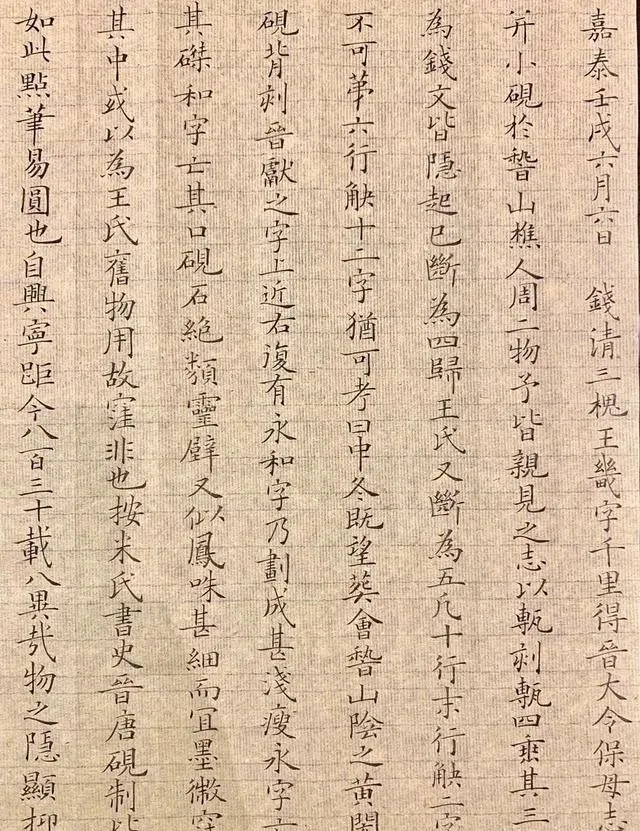 嘉泰壬戌六月六日 錢清三槐王畿字千里得晉大令保母志
并小硯於嵆山樵人周二物予皆親見之志以甎刻甎四垂其三
為錢文皆隱起已斷為四歸王氏又斷為五凡十行末行觖二字
不可苐六行觖十二字猶可考曰中冬既望葬會嵆山陰之黃閍
硯背刻晉獻之字上近右復有永和字乃劃成甚淺瘦永字亡
其磔和字亡其口硯石絕類靈壁又似鳳咮甚細而宜墨微窪
其中或以為王氏舊物用故窪非也按米氏書史晉唐硯制皆
如此點筆易圓也自興寧距今八百三十載八異哉物之隱顯抑